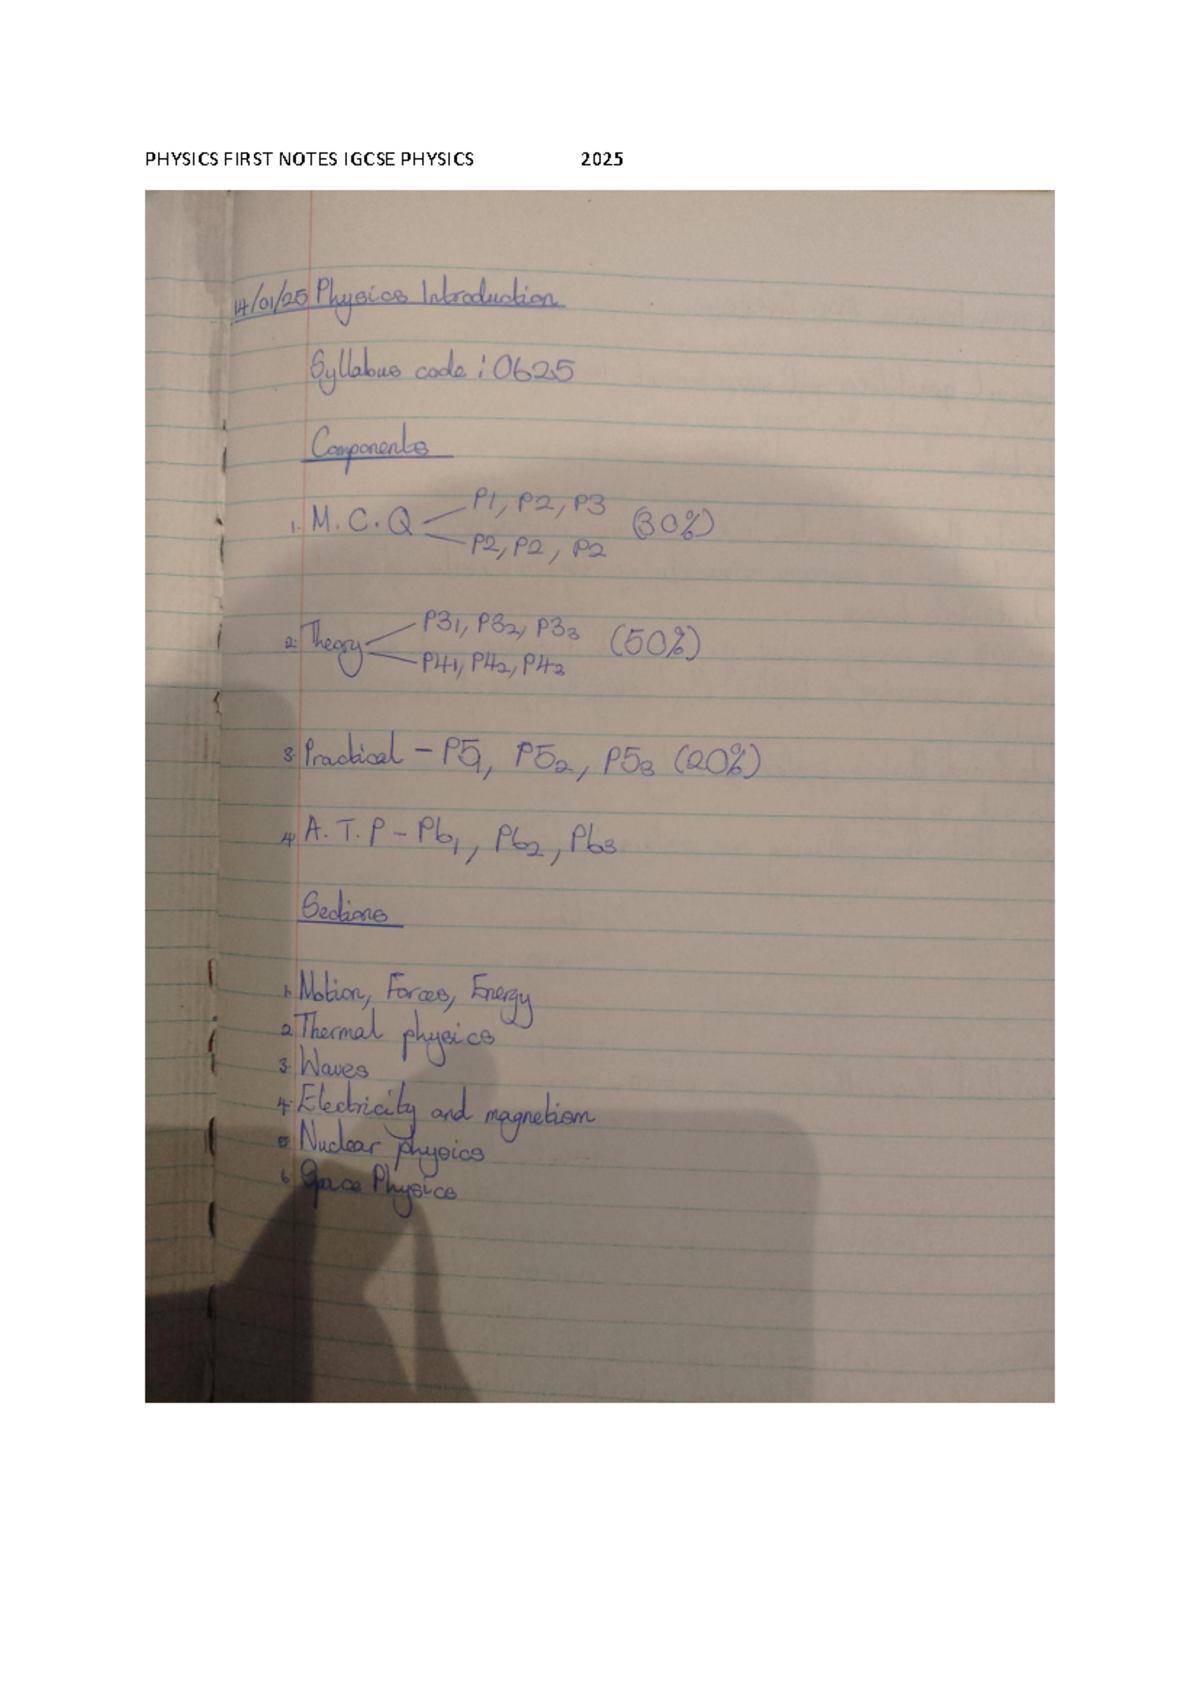 PHYSICS FIRST NOTES IGCSE PHYSICS 2025
14/01/25 Physics Introduction
Syllabus code : 0625
Components
1. M.C.Q P1, P2, P3 (30%)
P2, P2, P2
2. Theory P31, P32, P33 (50%)
P41, P42, P43
3. Practical - P51, P52, P53 (20%)
4. A.T.P - P61, P62, P63
Sections
1. Motion, Forces, Energy
2. Thermal physics
3. Waves
4. Electricity and magnetism
5. Nuclear physics
6. Space Physics